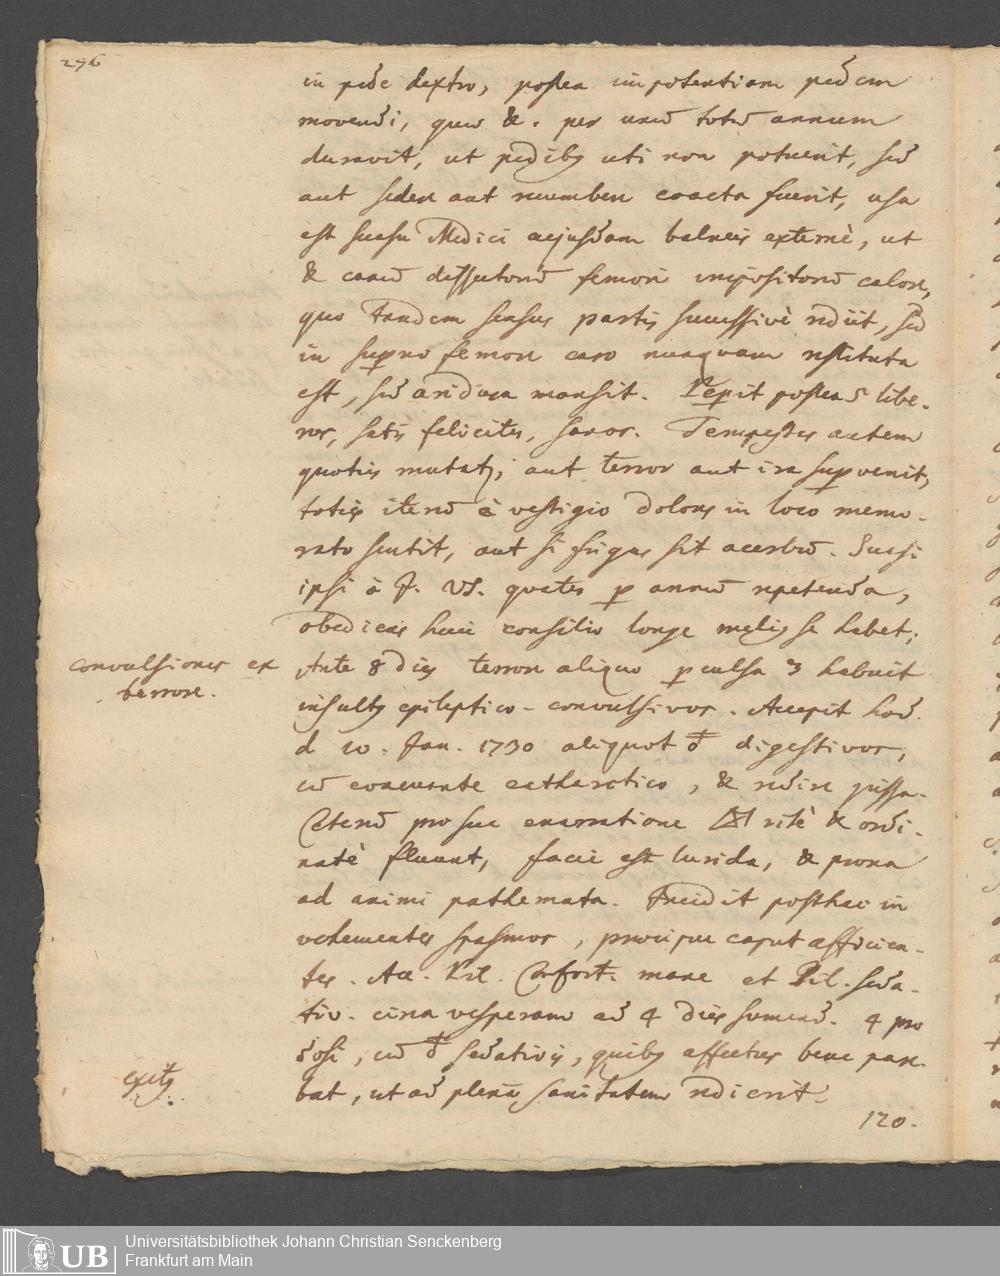 276
in pede dextro, postea impotentiam pedem
movendi, quae &. per unum totum annum
duravit, ut pedibus uti non potuerit, sed
aut sedere aut recumbere coacta fuerit, usa
est suasu Medici cujusdam balneis externè, ut
& canum dissectorum femori impositorum calore,
quo tandem sensus partis successivè rediit, sed
in supremo femore caro nunquam restituta
est, sed aridura mansit. Peperit postea 5 libe-
ros, satis feliciter, sanos. Tempestas autem
quoties mutatur, aut terror aut ira supervenit,
toties iterum è vestigio dolores in loco memo-
rato sentit, aut si frigus sit acerbum. Suasi
ipsi à V.S. quater per annum repetenda,
obediens huic consilio longe melius se habet;
convulsiones ex
terrore.
Ante 8 dies terrore aliquo perculsa 3 habuit
insultus epileptico-convulsivos. Accepit hod.
d 20. Jan. 1730 aliquot digestivos,
cum evacuante cathartico, & redire jussa.
Ceterum pro suae enarratione ritè & ordi-
natè fluunt, facie est lurida, & prona
ad animi pathemata. Incidit posthac in
vehementes spasmos, praecipue caput afficien-
tes. Acc. Confort. mane et Pil. seda-
tiv. circa vesperam ad 4 dies sumend. 4 pro
dosi, cum sedativis, quibus affectus bene pare-
bat, ut ad plenam sanitatem redierit.
exitus
120.
Universitätsbibliothek Johann Christian Senckenberg
Frankfurt am Main
UB